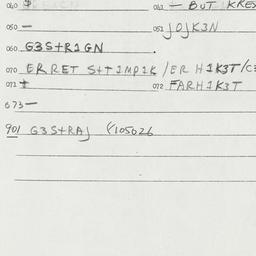 040 $ 041 — BUT KRES
050 — 051 JOJK3N
060 G3S+R1GN .
070 ERRET S++IMP1K /ER H1K3T/C3
071 ± 072 FARH1K3T
073 —
901 G3S+RAJ F105026